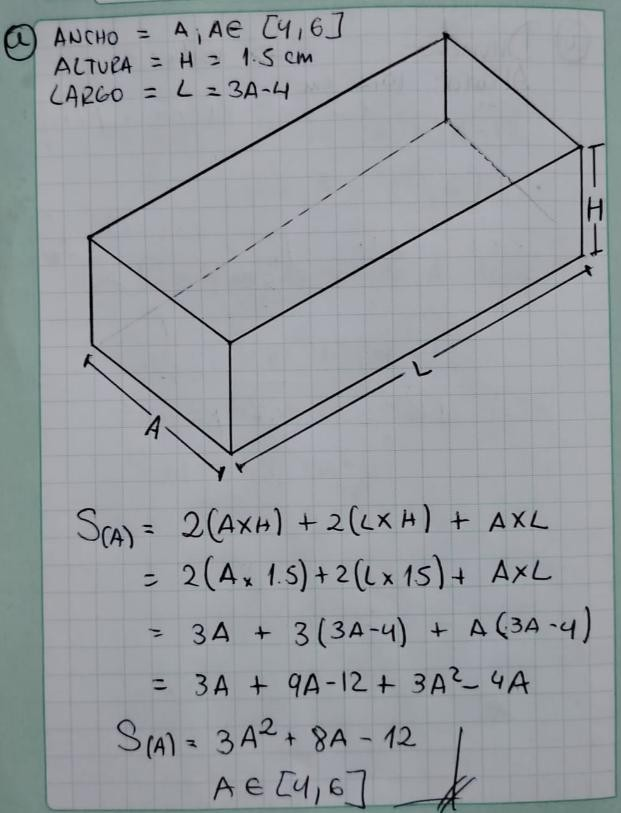 a ANCHO = A, A∈ [4,6]
ALTURA = H = 1.5 cm
LARGO = L = 3A-4
H
L
A
S(A) = 2(AxH) + 2(LxH) + AxL
= 2(Ax 1.5)+2(Lx 15)+ AxL
= 3A + 3(3A-4) + A(3A-4)
= 3A + 9A-12 + 3A²-4A
S(A) = 3A²+ 8A - 12
A∈ [4,6]